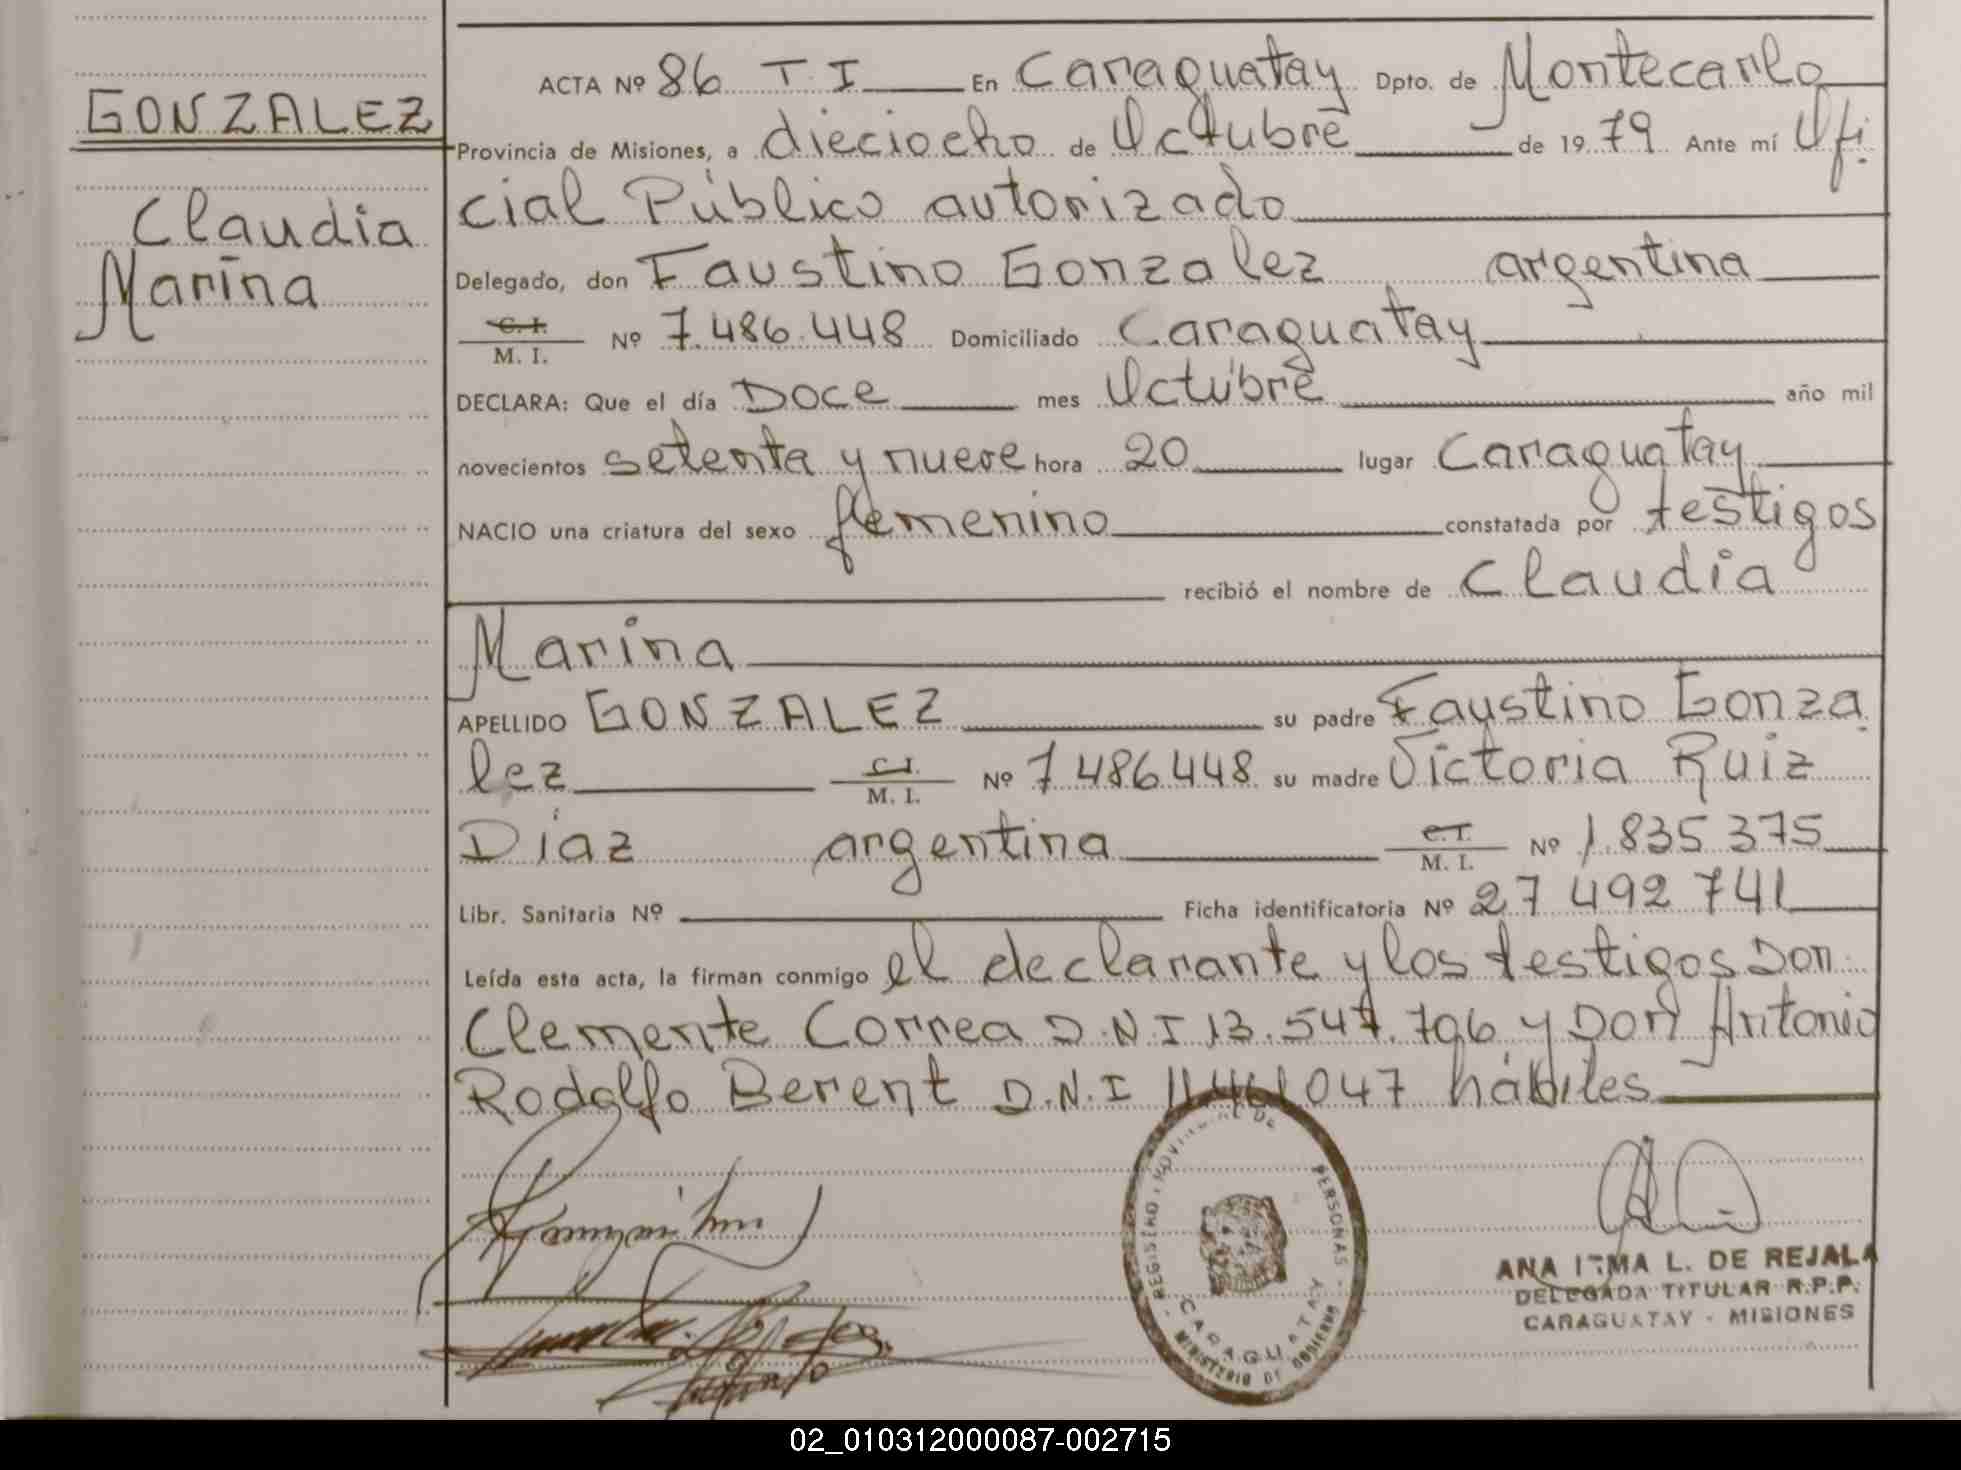 GONZALEZ
Claudia
Marina
ACTA Nº 86 T. I En Caraguatay Dpto. de Montecarlo
Provincia de Misiones, a dieciocho de Octubre de 1979 Ante mí Ofi
cial Público autorizado
Delegado, don Faustino Gonzalez argentina
C. I. M. I. Nº 7.486.448 Domiciliado Caraguatay
DECLARA: Que el día Doce mes Octubre año mil
novecientos setenta y nueve hora 20 lugar Caraguatay
NACIO una criatura del sexo femenino constatada por testigos
recibió el nombre de Claudia
Marina
APELLIDO GONZALEZ su padre Faustino Gonza
lez C.I. M. I. Nº 7.486.448 su madre Victoria Ruiz
Díaz argentina C.I. M. I. Nº 1.835.375
Libr. Sanitaria Nº Ficha identificatoria Nº 27 492 741
Leída esta acta, la firman conmigo el declarante y los testigos Don
Clemente Correa D.N.I 13.547.796 y Don Antonio
Rodolfo Berent D.N.I 11.461.047 hábiles
REGISTRO PROVINCIAL DE PERSONAS
CARAGUATAY
MINISTERIO DE GOBIERNO
ANA IRMA L. DE REJALA
DELEGADA TITULAR R.P.P.
CARAGUATAY - MISIONES
02_010312000087-002715